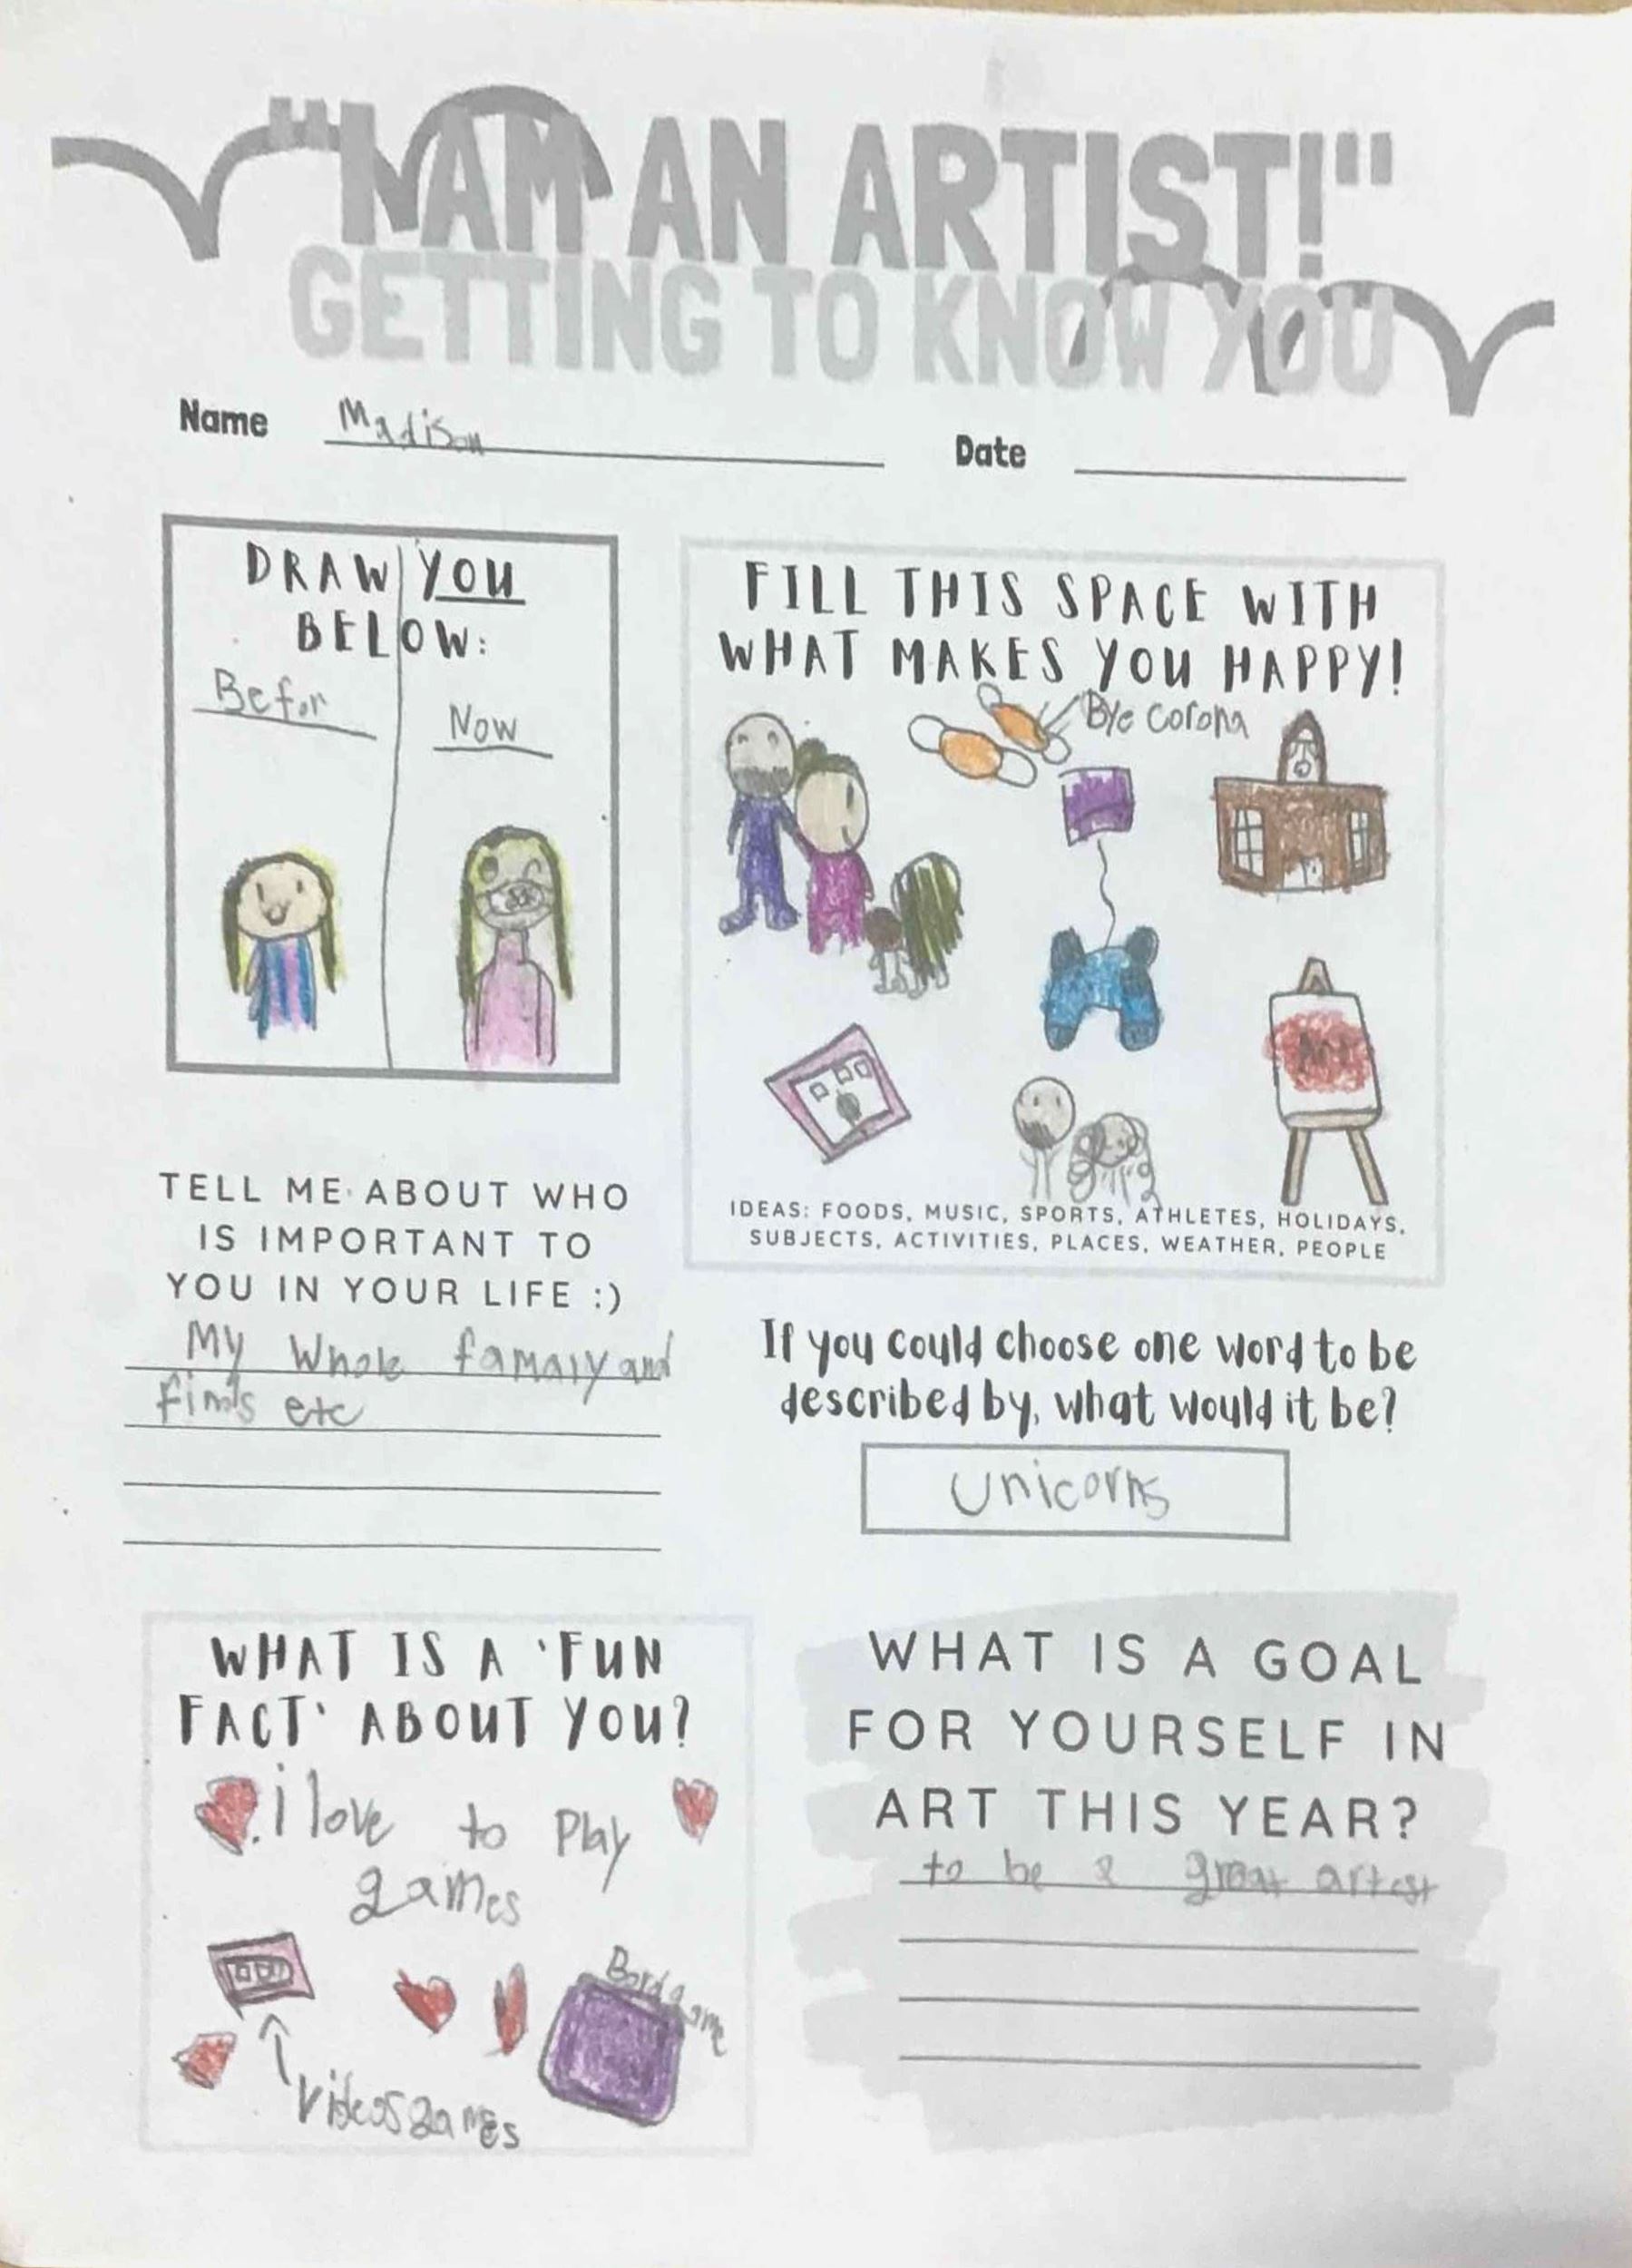 "I AM AN ARTIST!"
GETTING TO KNOW YOU
Name Madison Date
DRAW YOU
BELOW:
Befor
Now
FILL THIS SPACE WITH
WHAT MAKES YOU HAPPY!
Bye corona
Art
IDEAS: FOODS, MUSIC, SPORTS, ATHLETES, HOLIDAYS,
SUBJECTS, ACTIVITIES, PLACES, WEATHER, PEOPLE
TELL ME ABOUT WHO
IS IMPORTANT TO
YOU IN YOUR LIFE :)
My Whole famaly and
etc
If you could choose one word to be
described by, what would it be?
Unicorns
WHAT IS A 'FUN
FACT' ABOUT YOU?
i love to Play
games
Bord game
videosgames
WHAT IS A GOAL
FOR YOURSELF IN
ART THIS YEAR?
to be a great artest